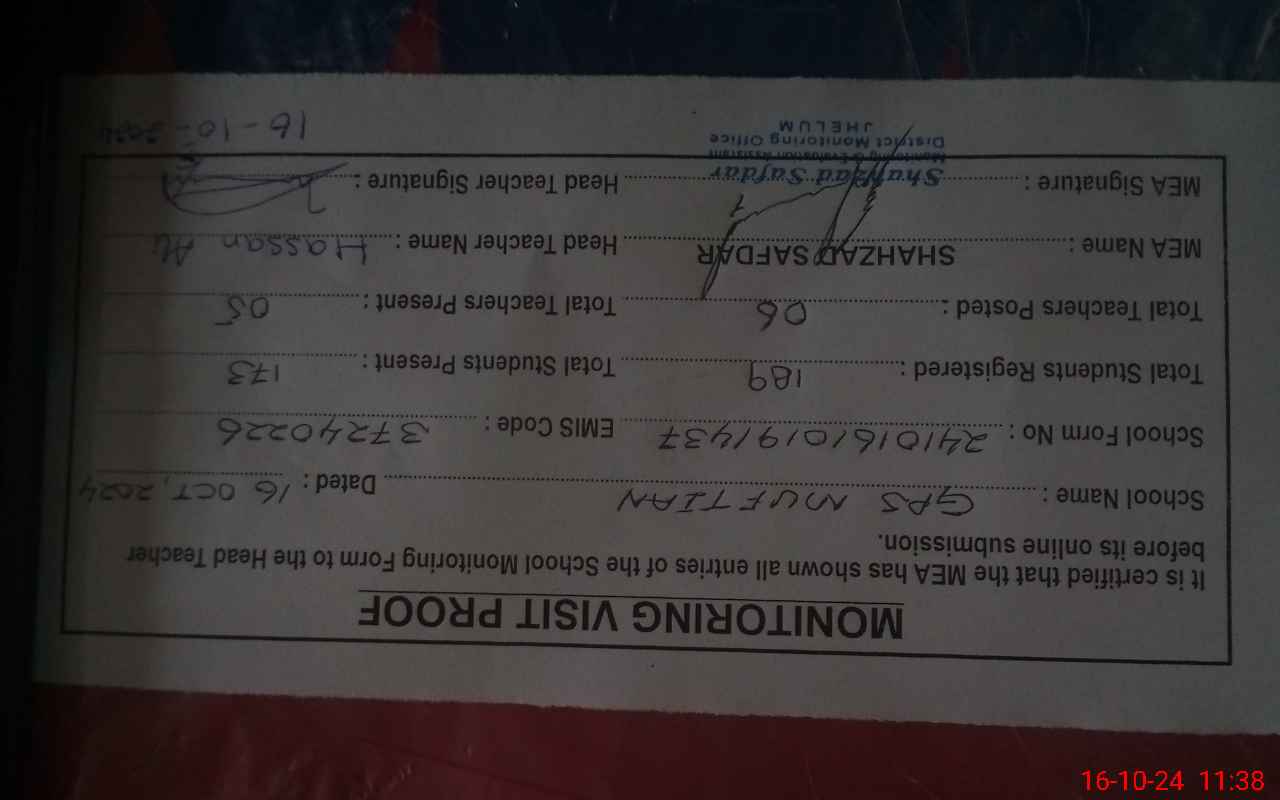 MONITORING VISIT PROOF
It is certified that the MEA has shown all entries of the School Monitoring Form to the Head Teacher
before its online submission.
School Name : GPS MUFTIAN Dated : 16 OCT, 2024
School Form No : 24101610191437 EMIS Code : 37240226
Total Students Registered : 189 Total Students Present : 173
Total Teachers Posted : 06 Total Teachers Present : 05
MEA Name : SHAHZAD SAFDAR Head Teacher Name : Hassan Ali
MEA Signature : Shahzad Safdar Head Teacher Signature :
Monitoring & Evaluation Assistant
District Monitoring Office
JHELUM
16-10-2024
16-10-24 11:38